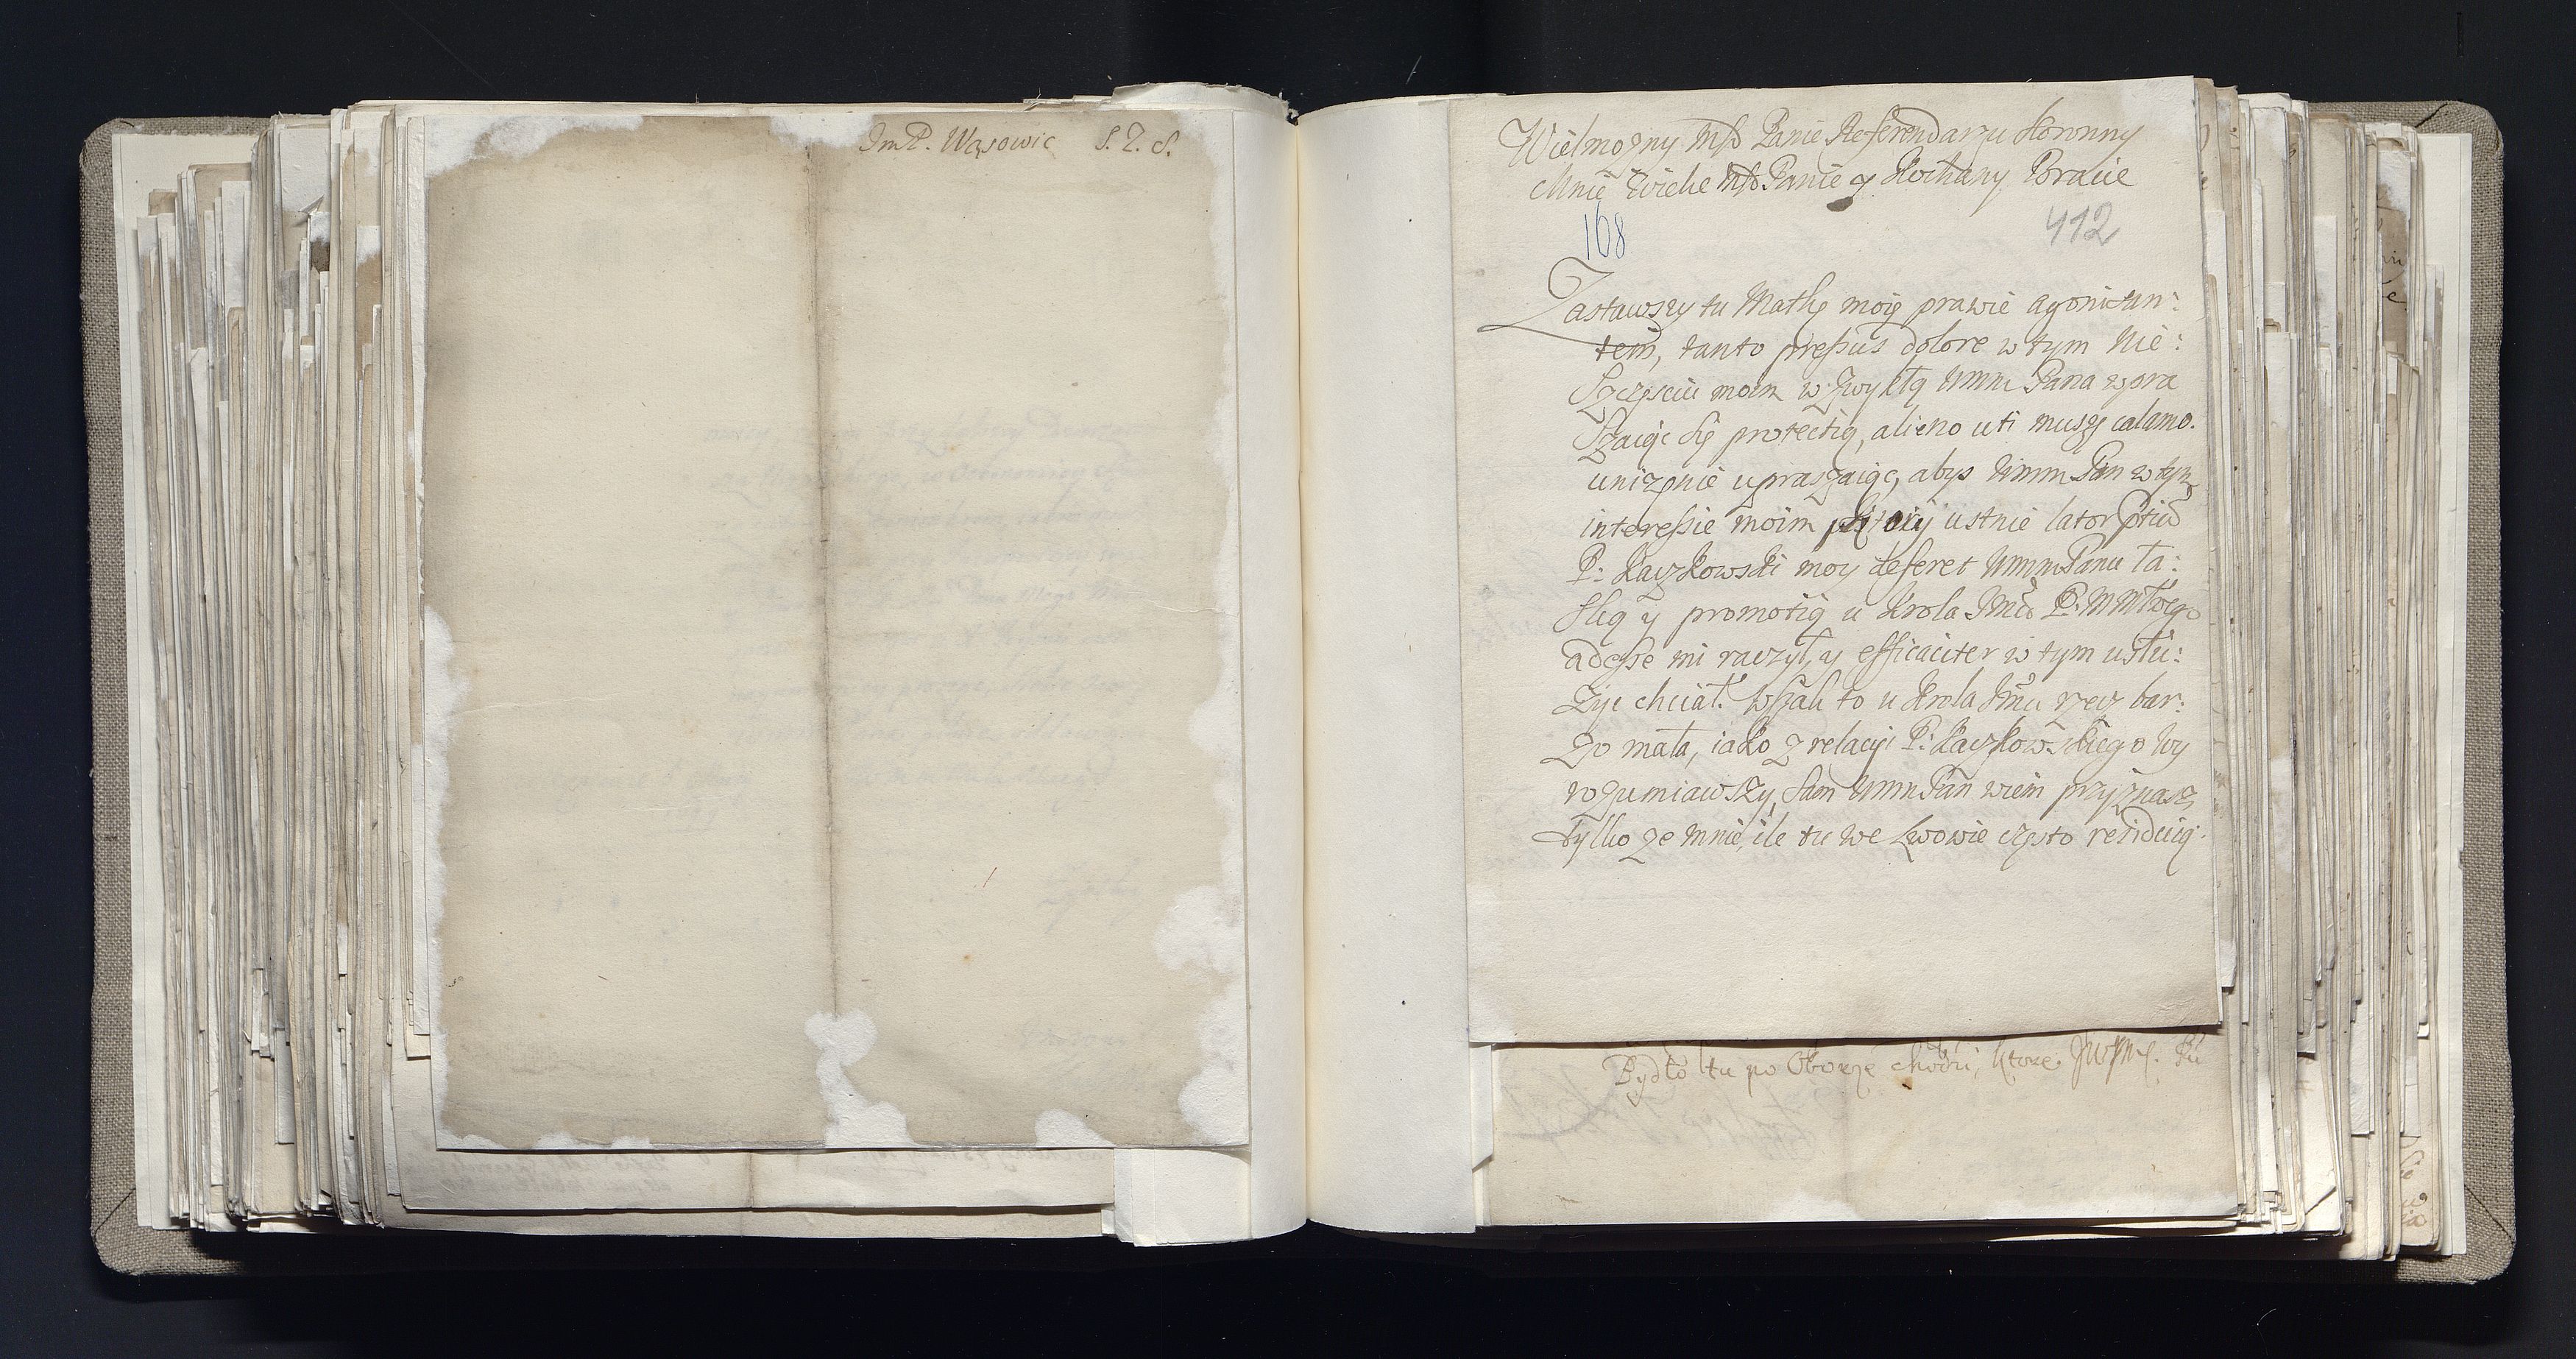 ImP. Wąsowic S. T. S.
Wielmożny Mśc Panie Referendarzu Koronny
Mnie Wielce Mśc Panie y Kochany Bracie
168
412
Zastawszy tu Matkę moię prawie agonizan:
tem, tanto pressus dolore w tym Nie:
Szczęściu moim w Zwykłą WMM Pana wpra
Szaiąc się protectią, alieno uti muszę calamo.
uniżenie upraszaiąc, abys WMM Pan w tym
interessie moim ustnie lator
P: Kaczkowski moy deferet WMM Panu ła:
Ską y promotią u Krola JMci P. M Młwego
adesse mi raczył, y efficaciter w tym usłu:
Życ chciał. Wszak to u Krola Jmci rzecz bar:
Zo mała, iako z relacyi P: Kaczkowskiego wy
rozumiawszy, Sam WMM Pan wiem przyznasz,
tylko ze mnie, ile tu we Lwowie często reziduią.
Bydło tu po Oborze chodzi, ktore